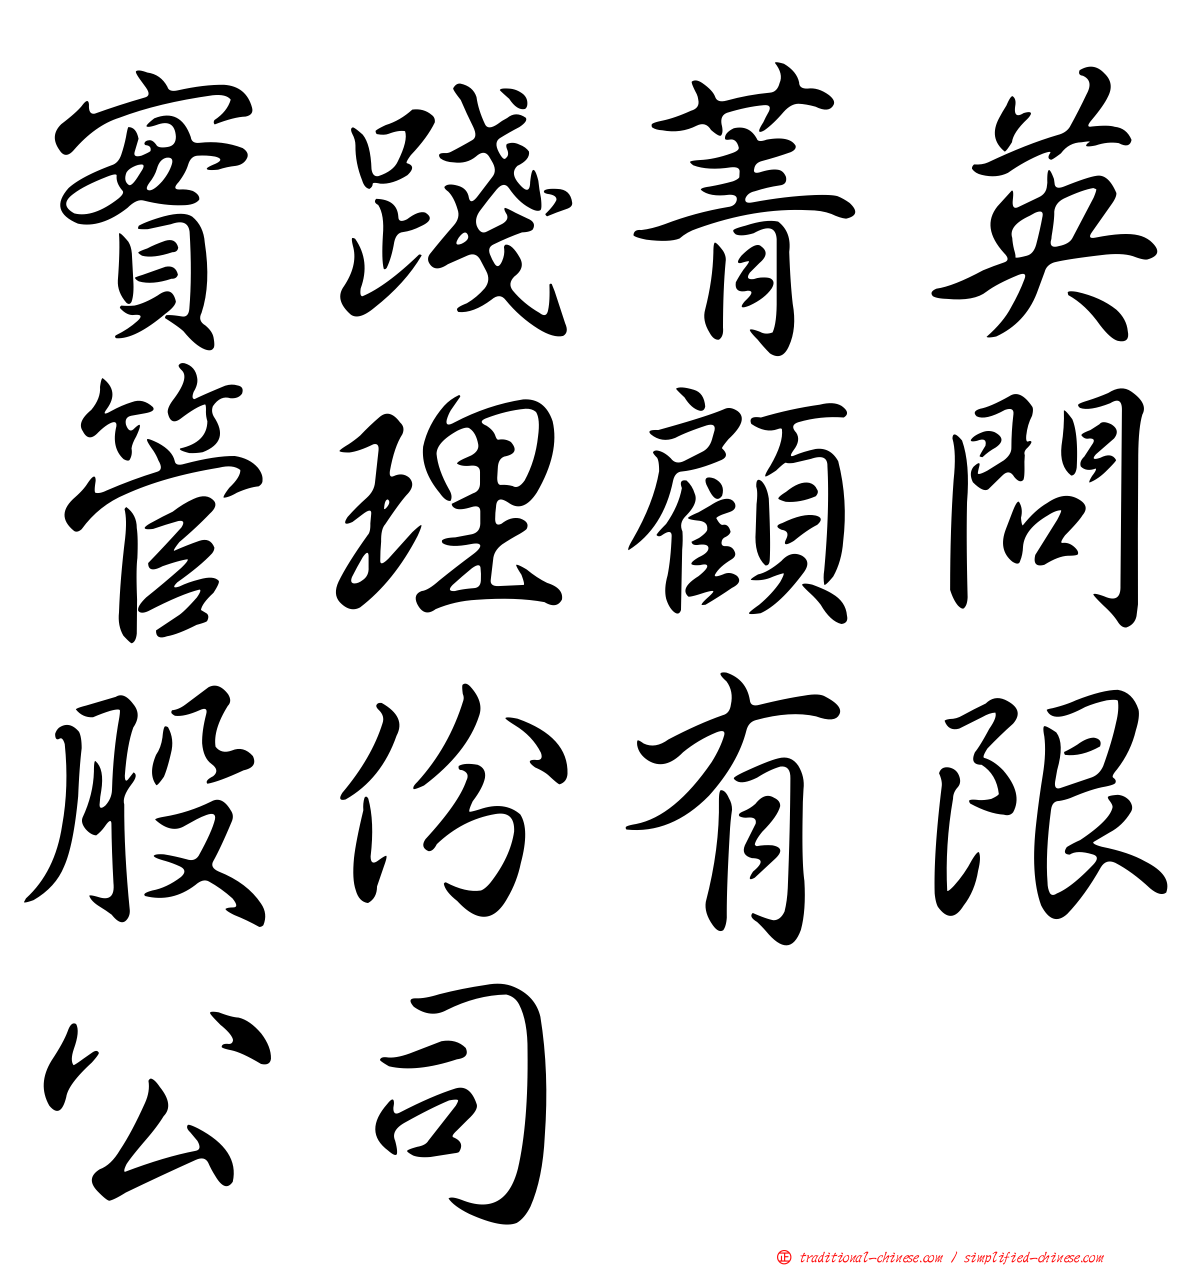 實踐菁英
管理顧問
股份有限
公司
正 traditional-chinese.com / simplified-chinese.com